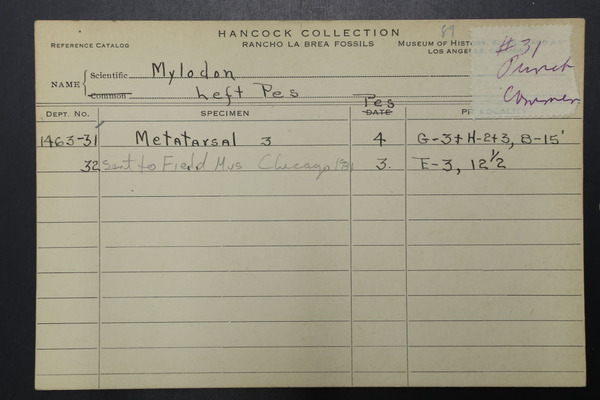 HANCOCK COLLECTION 89
REFERENCE CATALOG RANCHO LA BREA FOSSILS MUSEUM OF HIST
LOS ANGE
#31
Punch
Corner
NAME Scientific Mylodon
Common Left Pes
DEPT. NO. SPECIMEN DATE Pes
1463-31 Metatarsal 3 4 G-3+H-2+3, 8-15'
32 sent to Field Mus Chicago 3. E-3, 12 1/2